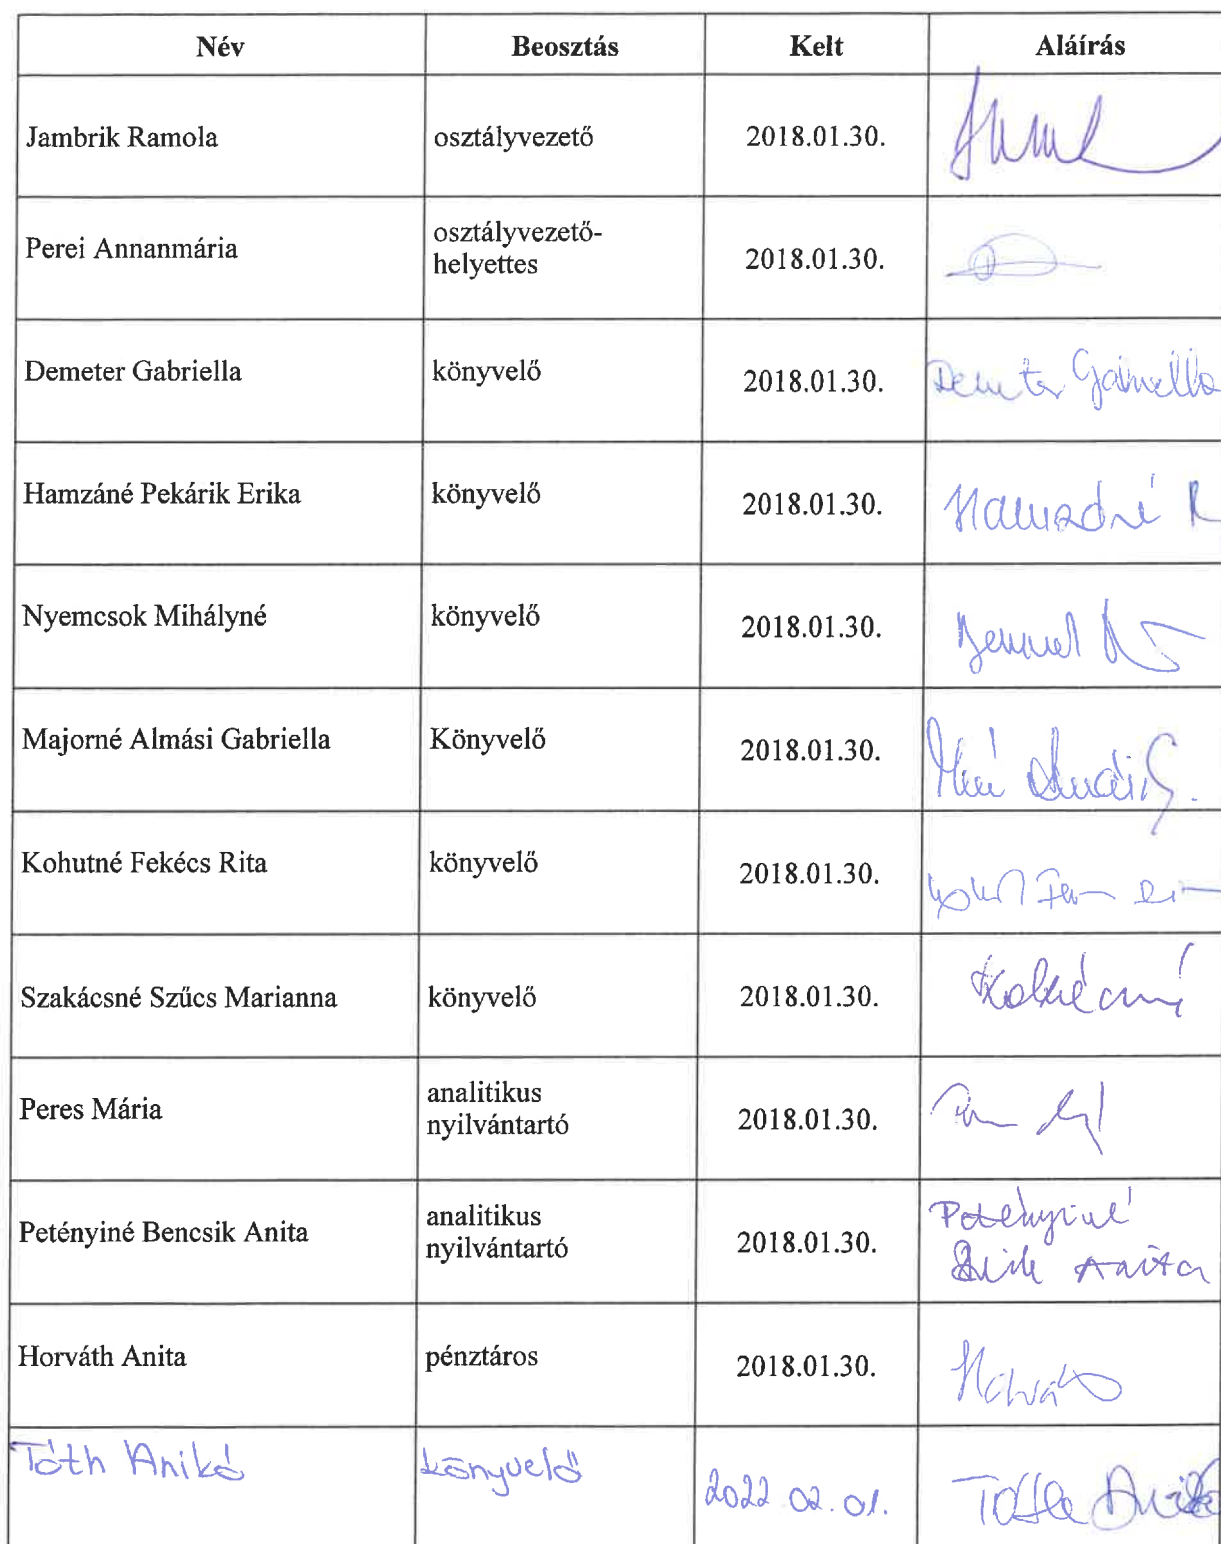 Név Beosztás Kelt Aláírás
Jambrik Ramola osztályvezető 2018.01.30.
Perei Annanmária osztályvezető-
helyettes 2018.01.30.
Demeter Gabriella könyvelő 2018.01.30. Demeter Gabriella
Hamzáné Pekárik Erika könyvelő 2018.01.30. Hamzáné
Nyemcsok Mihályné könyvelő 2018.01.30.
Majorné Almási Gabriella Könyvelő 2018.01.30.
Kohutné Fekécs Rita könyvelő 2018.01.30.
Szakácsné Szűcs Marianna könyvelő 2018.01.30.
Peres Mária analitikus
nyilvántartó 2018.01.30.
Petényiné Bencsik Anita analitikus
nyilvántartó 2018.01.30. Petényiné
Anita
Horváth Anita pénztáros 2018.01.30. Horváth
Tóth Anikó könyvelő 2022 02.01. Tóth Anikó